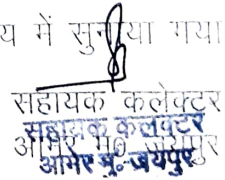 य में सुनाया गया
सहायक कलेक्टर
सहायक कलक्टर
आमेर मु0 जयपुर
आमेर मु. जयपुर